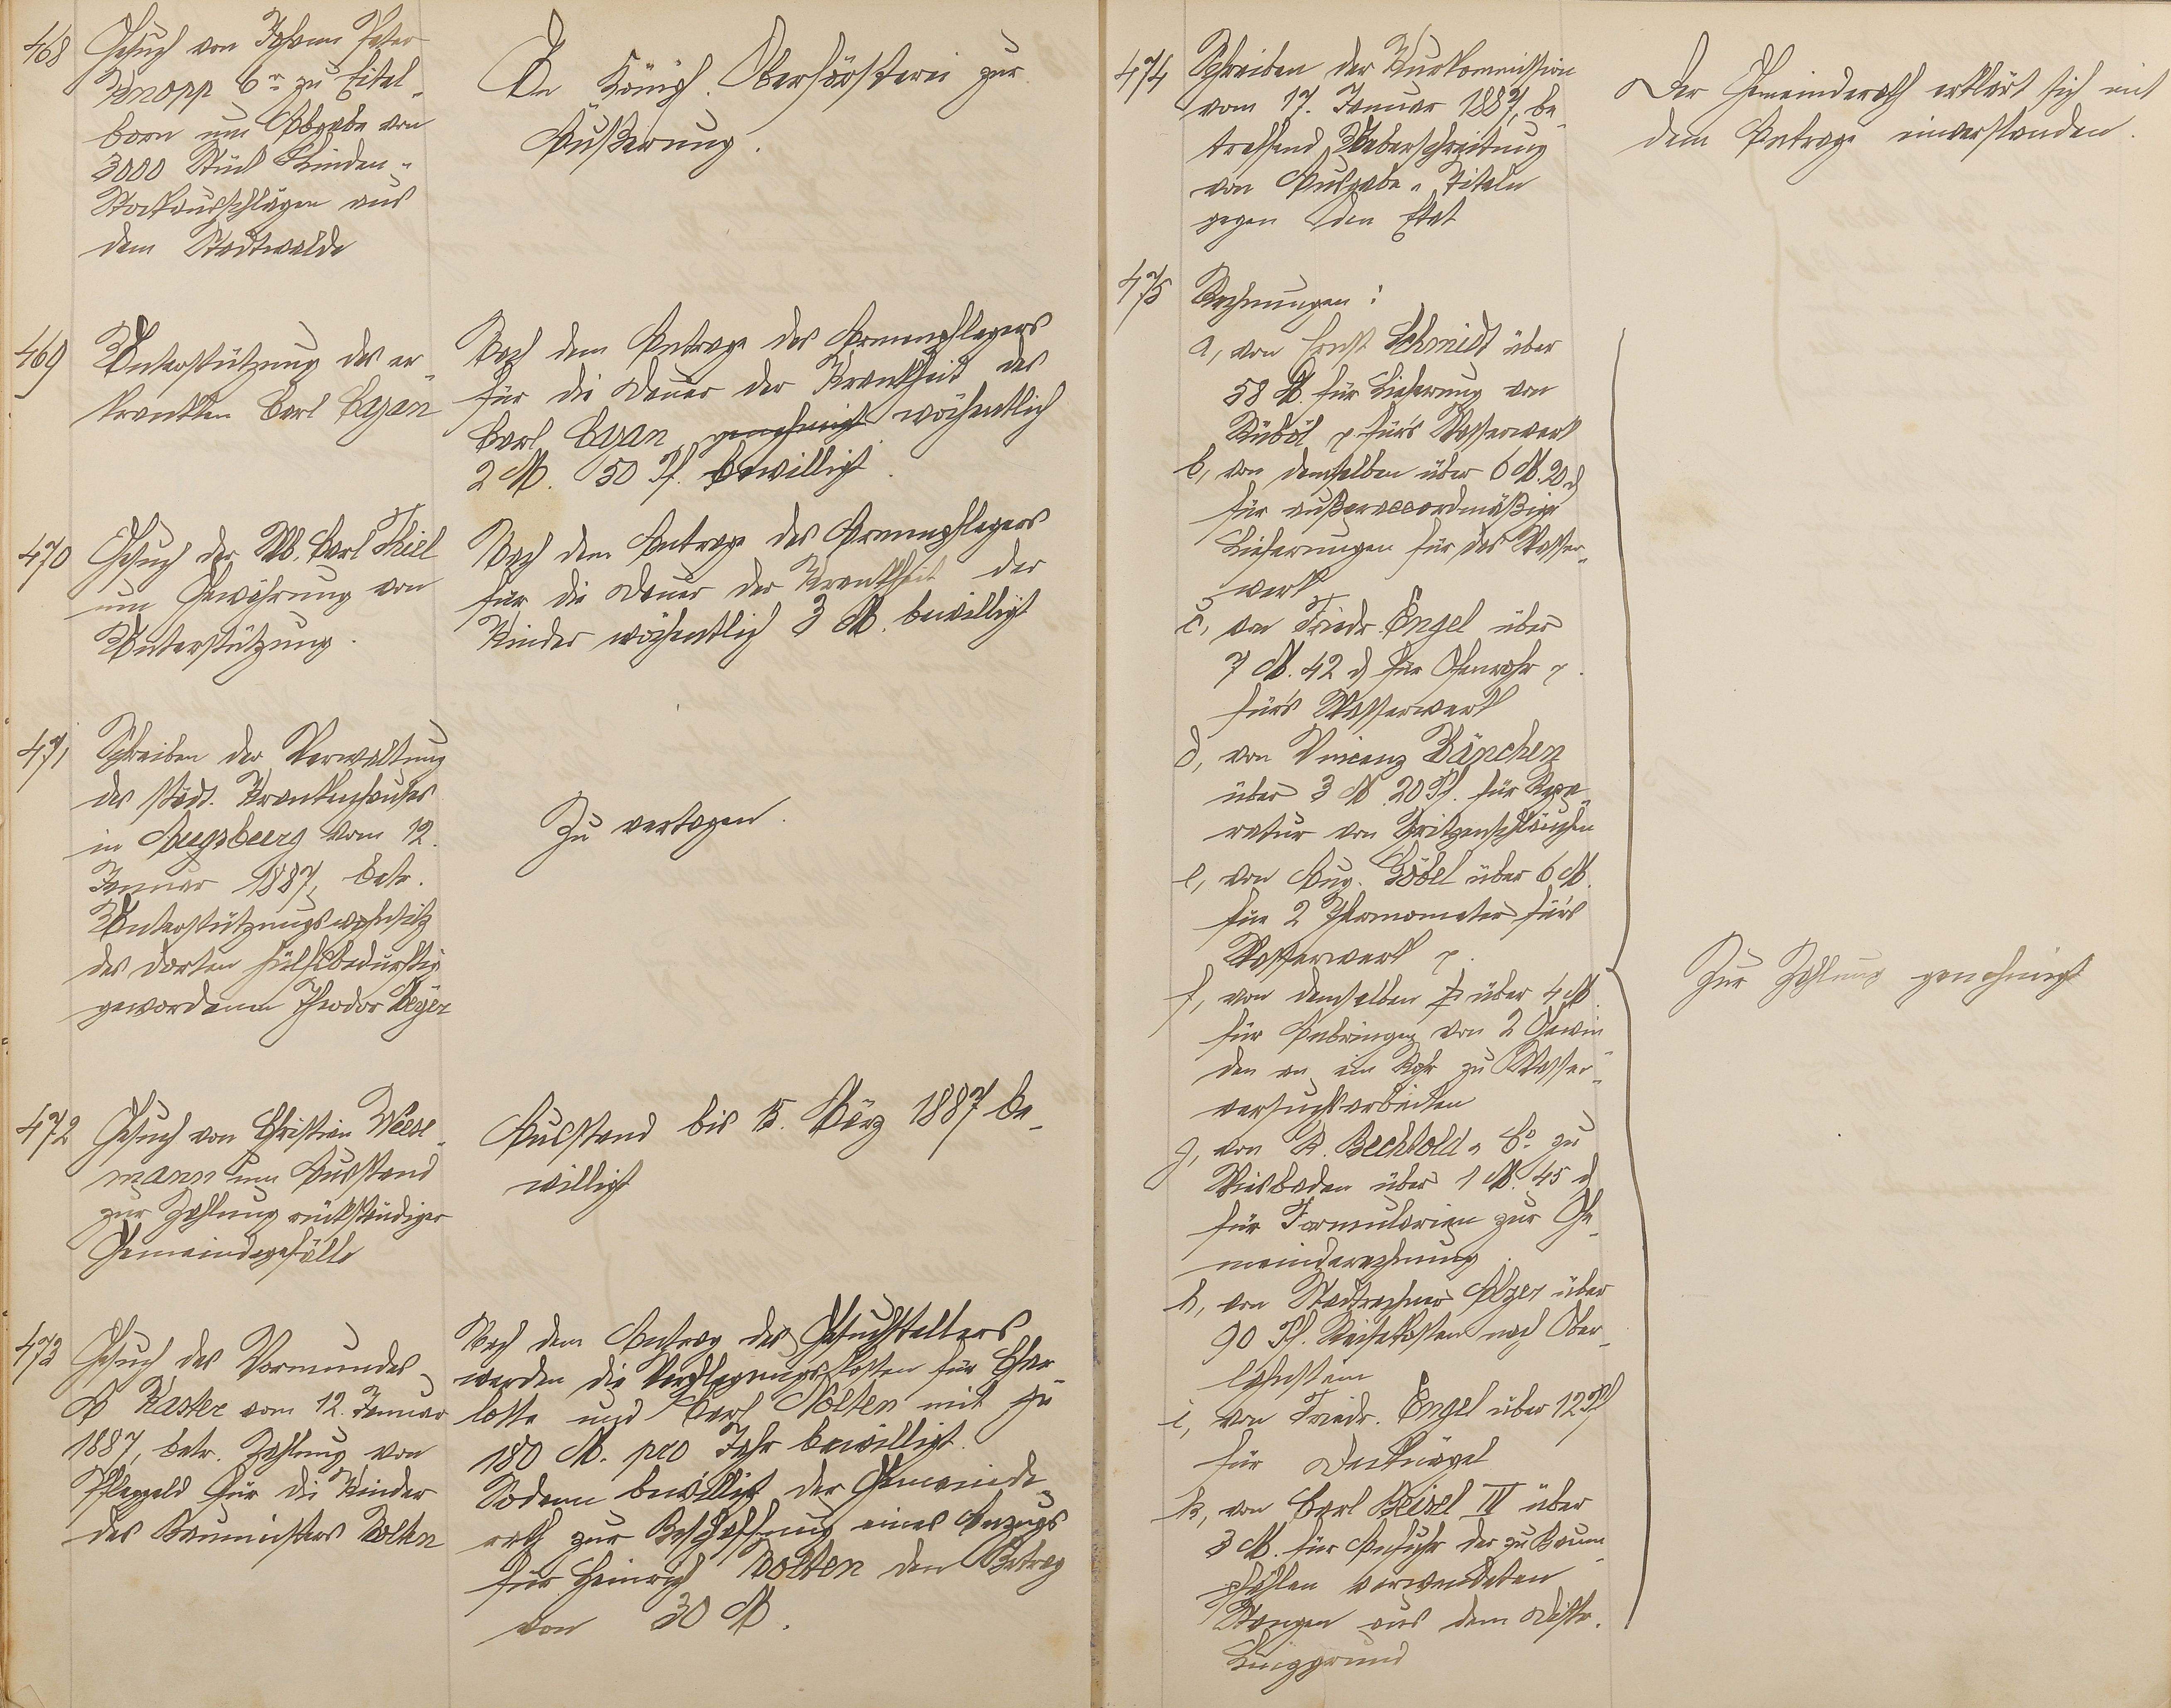 468
Gesuch von Johann Peter
Knopp 6r zu Eitel-
born um Abgabe von
3000 Stück Linden-
Stockausschlägen aus
dem Stadtwalde
An Königl. Oberförsterei zur
Äußerung.
469
Unterstützung des er-
krankten Carl Cajan
Nach dem Antrage des Armenpflegers
für die Dauer der Krankheit des
Carl Cajan genehmigt wöchentlich
2 M. 50 Pf. bewilligt.
470
Gesuch der W. Carl Thiel
um Gewährung von
Unterstützung.
Nach dem Antrage des Armenpflegers
für die Dauer der Krankheit der
Kinder wöchentlich 3 M. bewilligt
471
Schreiben der Verwaltung
des städt. Krankenhauses
in Augsburg vom 12.
Januar 1887, betr.
Unterstützungswohnsitz
des dorten hülfsbedürftig
gewordenen Theodor Beyer
Zu vertagen.
472
Gesuch von Christian Weese-
mann um Ausstand
zur Zahlung rückständiger
Gemeindegefälle
Ausstand bis 15. März 1887 be-
willigt
473
Gesuch des Vormundes
A Kaster vom 12. Januar
1887, betr. Zahlung von
Pflegeld für die Kinder
des Baumeisters Nolten
Nach dem Antrag des Gesuchstellers
werden die Verpflegungskosten für Char-
lotte und Carl Nolten mit je
180 M. pro Jahr bewilligt.
Sodann bewilligt der Gemeinde-
rath zur Beschaffung eines Anzugs
für Heinrich Nolten den Betrag
von 30 M.
474
Schreiben der Kurkommission
vom 17. Januar 1887, be-
treffend Ueberschreitung
von Ausgabe-Titeln
gegen den Etat
Der Gemeinderath erklärt sich mit
dem Antrage einverstanden.
475
Rechnungen:
a, von Ernst Schmidt über
58 M. für Lieferung von
Rüböl p fürs Wasserwerk
b, von demselben über 6 M. 20 ₰
für außeraccordmäßige
Lieferungen für das Wasser-
werk
c, von Friedr. Engel über
7 M. 42 ₰ für Ofenrohr p.
fürs Wasserwerk
d, von Vincenz Bänchen
über 3 M. 20 Pf. für Repa-
ratur von Spritzenschläuchen
e, von Aug. Göbel über 6 M.
für 2 Thermometer fürs
Wasserwerk p.
f, von demselben über 4 M.
für Anbringen von 2 Gewin-
den an ein Rohr zu Wasser-
versuchsarbeiten
g, von R. Bechtold & Co. zu
Wiesbaden über 1 M. 45 ₰
für Formularien zur Ge-
meinderechnung.
h, von Stadtrechner über
90 Pf. Reisekosten nach Ober-
lahnstein
i, von Friedr. Engel über 12 Pf
für Decknägel
k, von Carl Beisel IV über
3 M. für Anfuhr der zu Baum-
pfählen verwendeten
Stangen aus dem Distr.
Zur Zahlung genehmigt